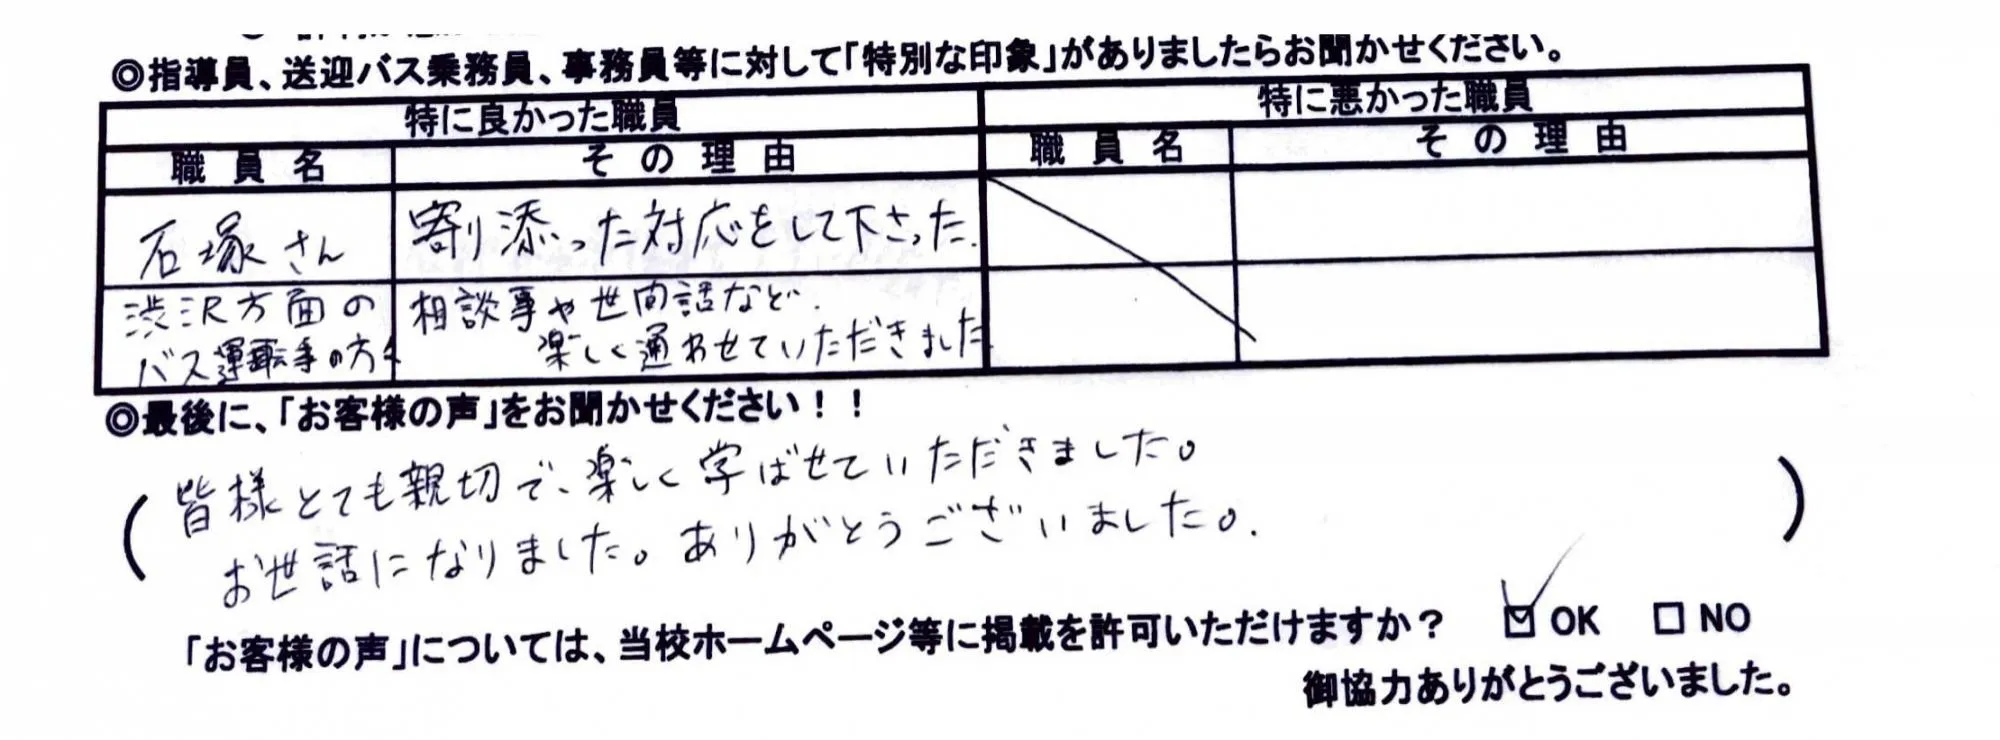 ◎指導員、送迎バス乗務員、事務員等に対して「特別な印象」がありましたらお聞かせください。
特に良かった職員 特に悪かった職員
職員名 その理由 職員名 その理由
石塚さん 割添った対応をして下さった.
渋沢方面の 相談事や世間話など.
バス運転手の方々 楽しく通わせていただきました
◎最後に、「お客様の声」をお聞かせください！！
(皆様とても親切で、楽しく学ばせていただきました。
お世話になりました。ありがとうございました。)
「お客様の声」については、当校ホームページ等に掲載を許可いただけますか？ ☑ OK □ NO
御協力ありがとうございました。